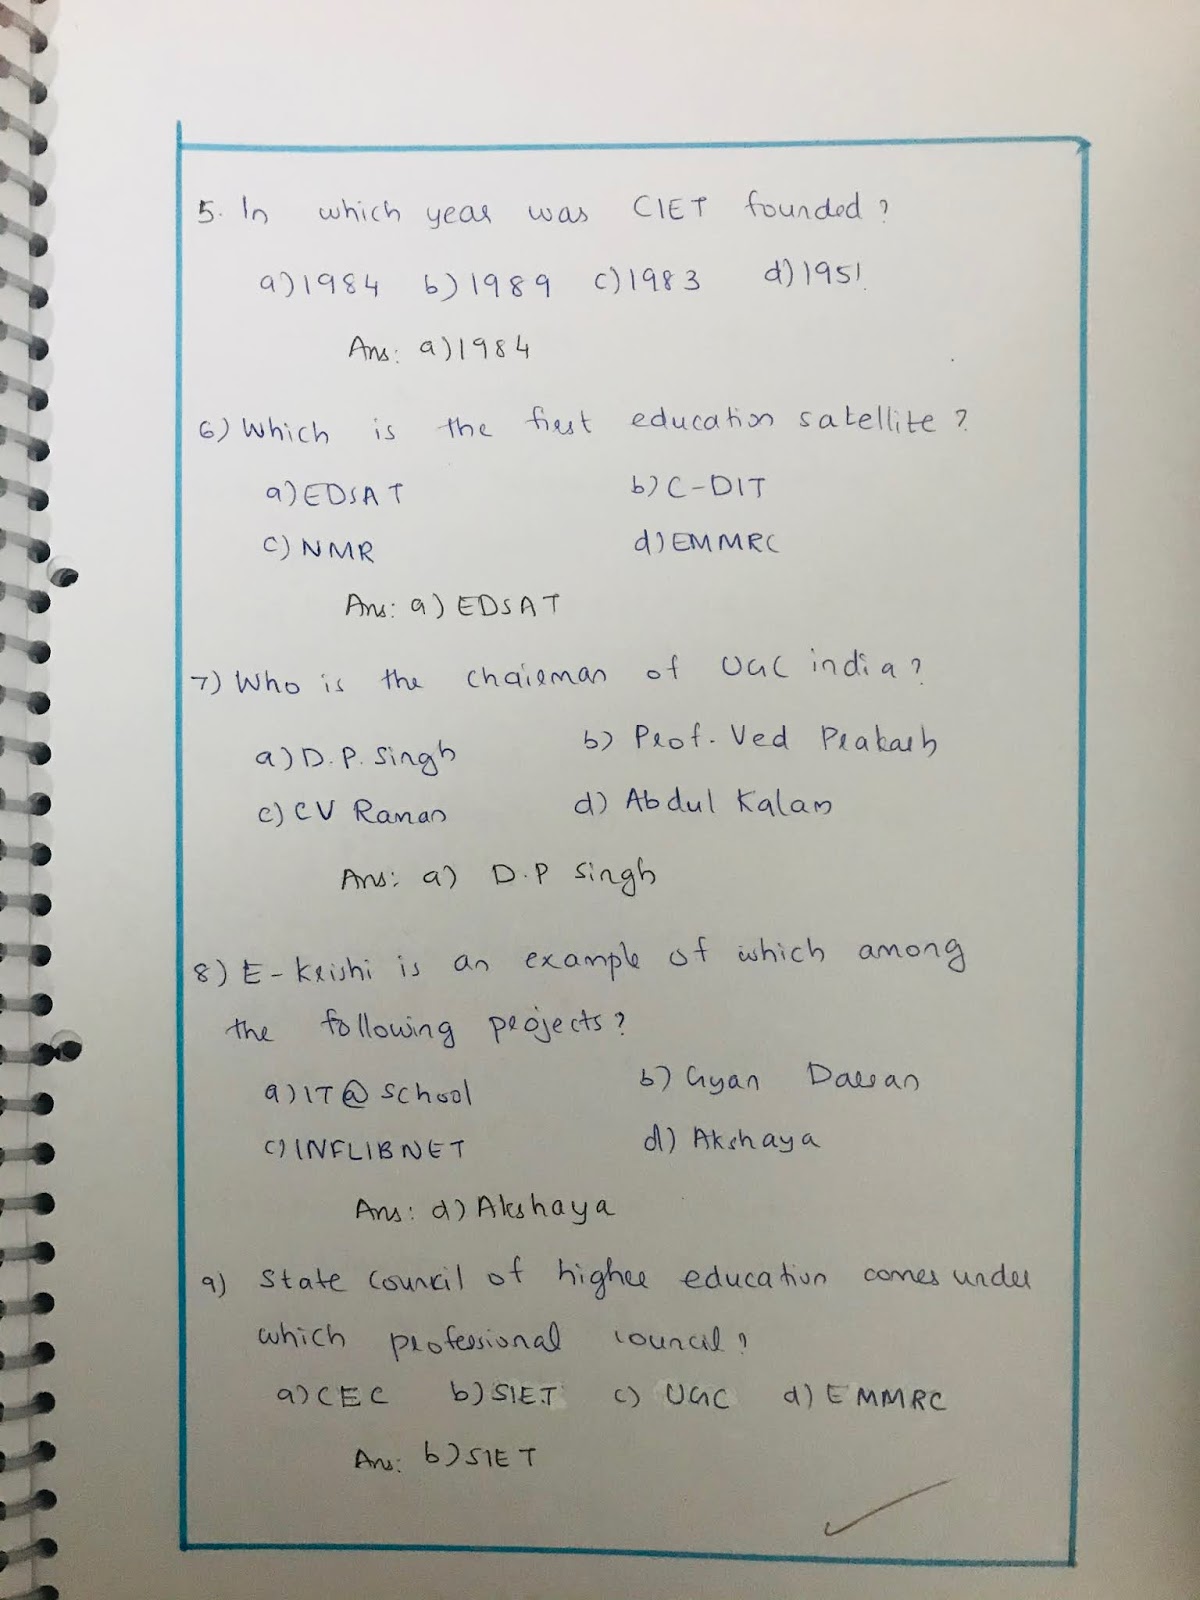 5. In which year was CIET founded?
a) 1984 b) 1989 c) 1983 d) 1951
Ans: a) 1984
6) Which is the first education satellite?
a) EDSAT b) C-DIT
c) NMR d) EMMRC
Ans: a) EDSAT
7) Who is the chairman of UGC india?
a) D.P. Singh b) Prof. Ved Prakash
c) CV Raman d) Abdul Kalam
Ans: a) D.P Singh
8) E-Krishi is an example of which among
the following projects?
a) IT@School b) Gyan Darsan
c) INFLIBNET d) Akshaya
Ans: d) Akshaya
9) State council of higher education comes under
which professional council?
a) CEC b) SIET c) UGC d) EMMRC
Ans: b) SIET